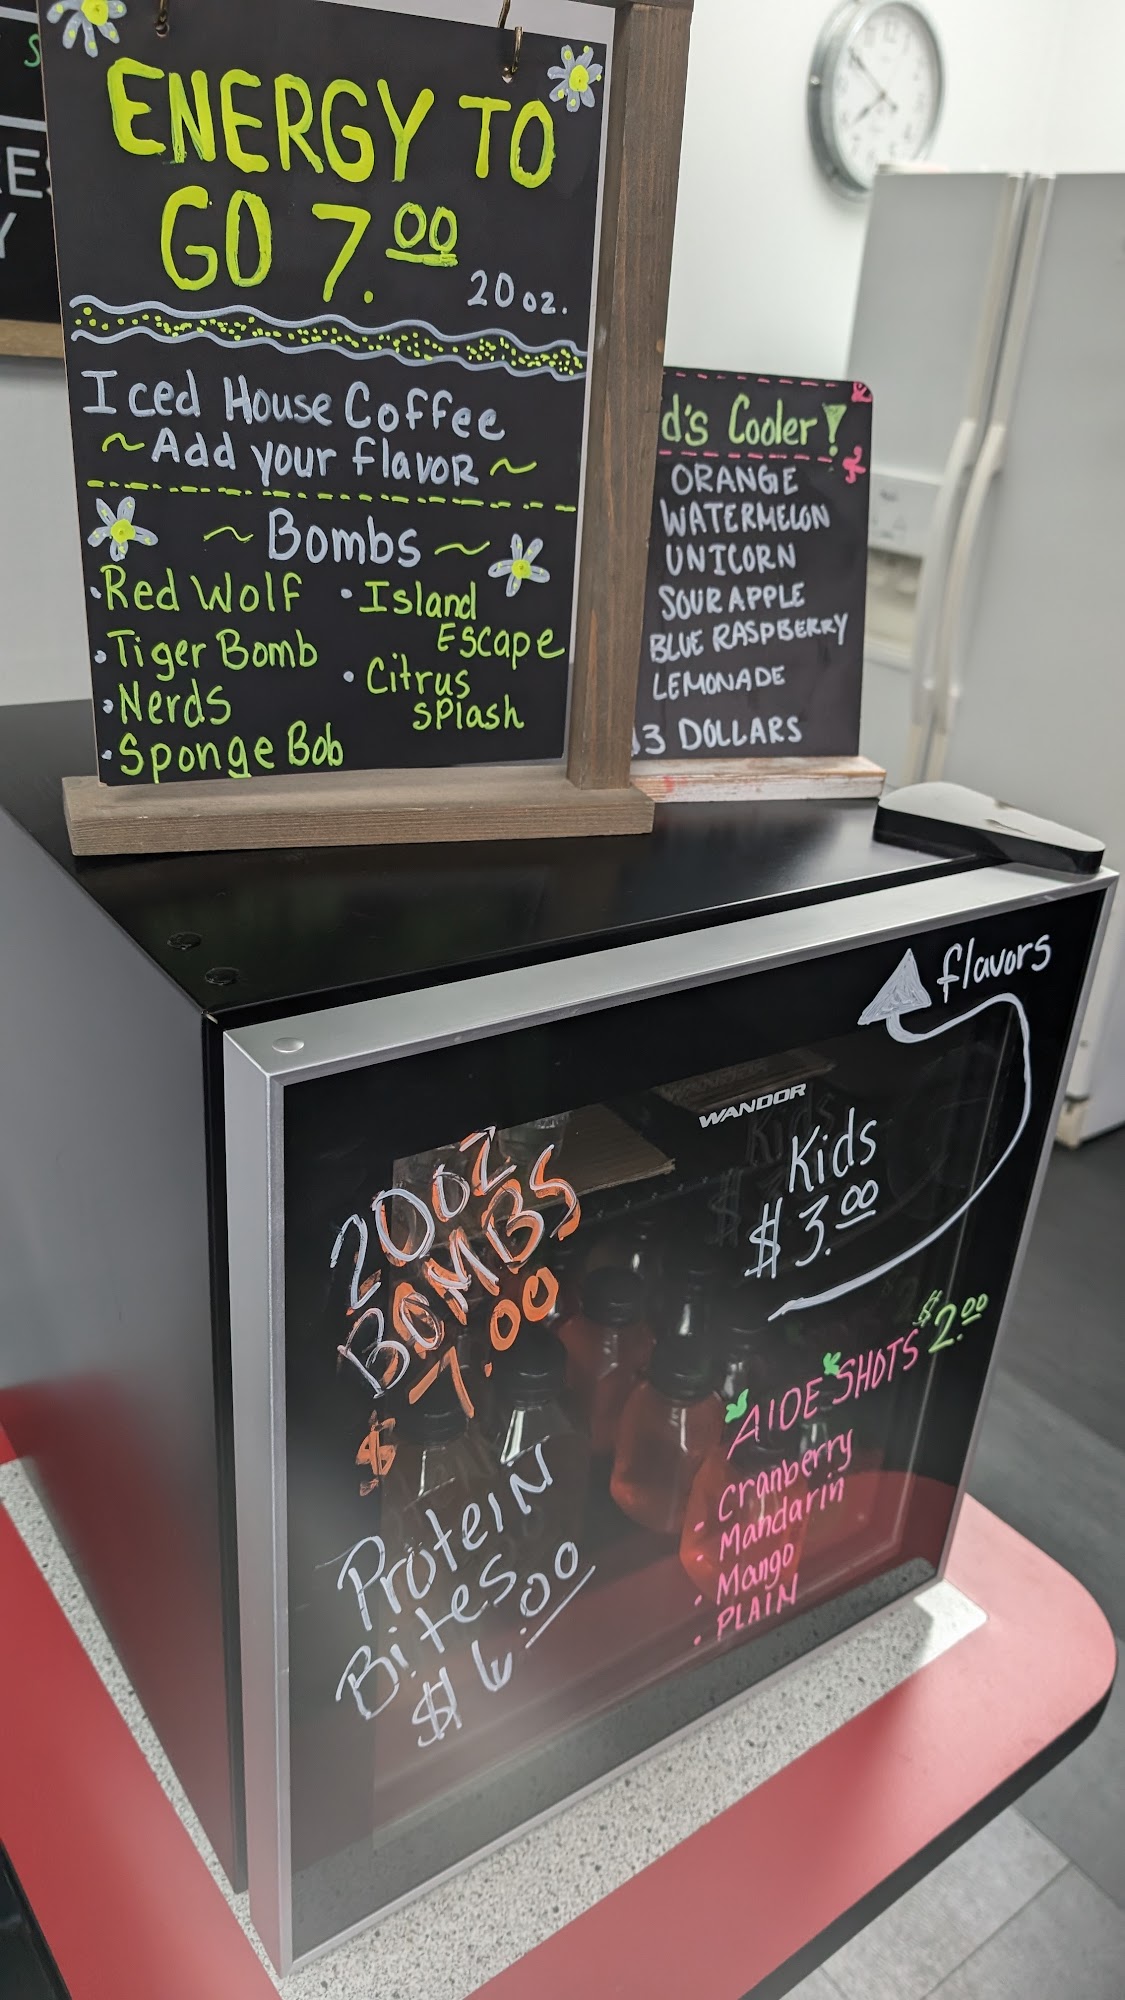 ENERGY TO
GO 7.00
20 oz.
Iced House Coffee
~Add your flavor~
~Bombs~
• Red Wolf
• Tiger Bomb
• Nerds
• Sponge Bob
• Island
Escape
• Citrus
Splash
d's Cooler!
ORANGE
WATERMELON
UNICORN
SOUR APPLE
BLUE RASPBERRY
LEMONADE
3 DOLLARS
flavors
WANDOR
Kids
$3.00
20oz
BOMBS
$7.00
Protein
Bites
$6.00
AIOE SHOTS $2.00
- Cranberry
• Mandarin
• Mango
• PLAIN